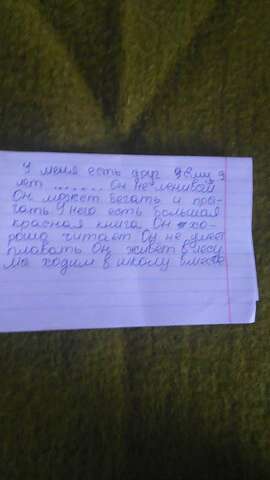 У меня есть друг Ему 9
лет ...... Он не ленивый
Он может бегать и пры-
гать У него есть большая
красная книга Он хо-
рошо читает Он не умеет
плавать Он живет в лесу
Мы ходим в школу вместе